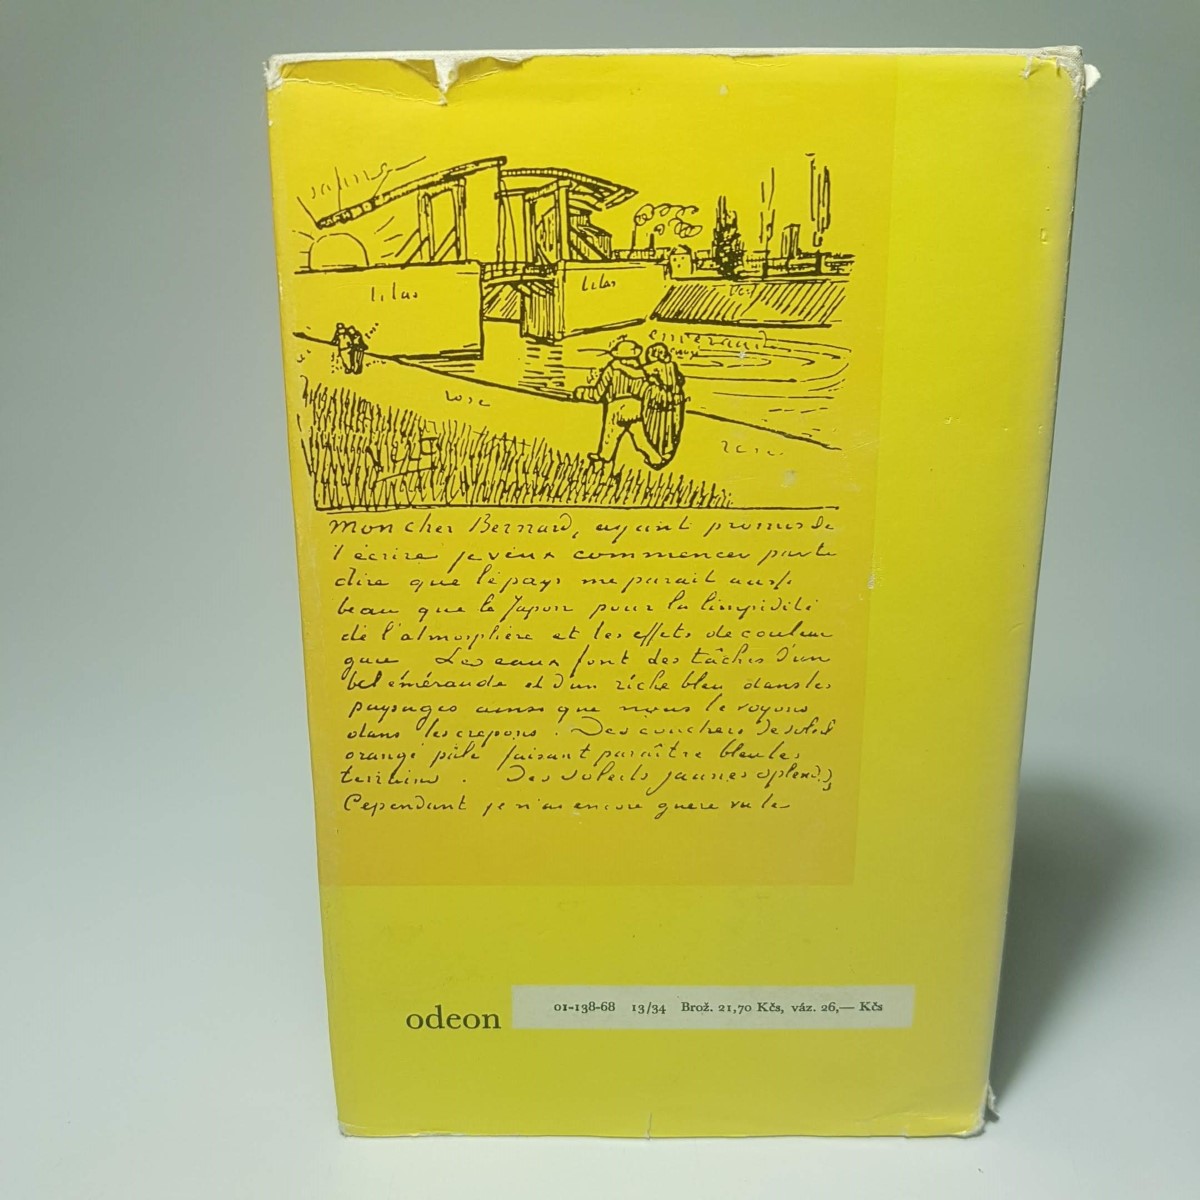 safran
lilas
lilas
vert
emeraude
rose
rose
Mon cher Bernard, ayant promis de
t'écrire je veux commencer par te
dire que le pays me parait aussi
beau que le Japon pour la limpidité
de l'atmosphère et les effets de couleur
gaie Les eaux font des tâches d'un
bel émeraude et d'un riche bleu dans les
paysages ainsi que nous le voyons
dans les crepons. Des couchers de soleil
orangé pâle faisant paraître bleu les
terrains. Des soleils jaunes splendides
Cependant je n'ai encore guère vu le
odeon
01-138-68 13/34 Brož. 21,70 Kčs, váz. 26,— Kčs